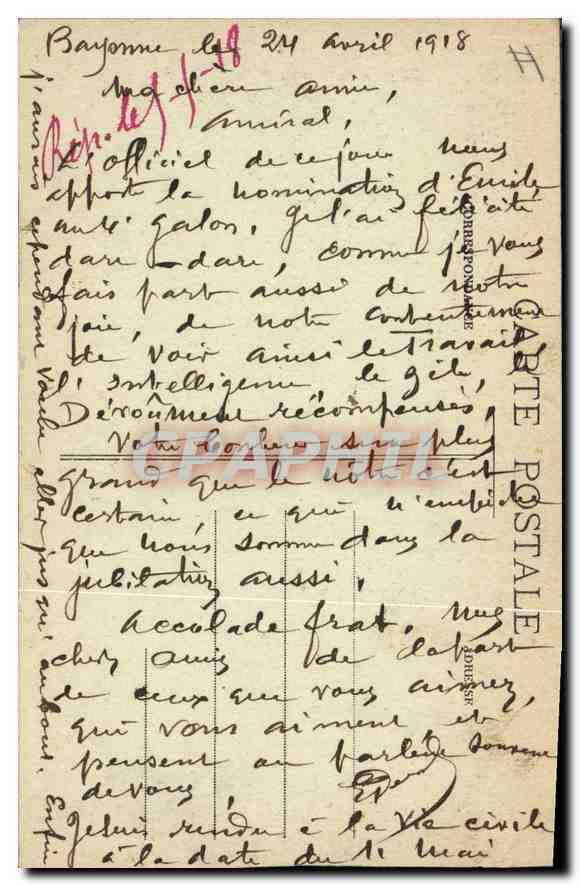 Bayonne le 24 avril 1918
Rép. le
Ma chère amie,
Amiral,
L'officiel de ce jour nous
apporte la nomination d'Emile
au 4e galon. Je l'ai félicité
dare-dare, comme je vous
fais part aussi de notre
joie, de notre contentement
de voir ainsi le Travail,
l'Intelligence le Zèle,
Dévoûment récompensés,
Votre bonheur sera plus
grand que le nôtre c'est
certain, ce qui n'empêche
que nous sommes dans la
jubilation aussi.
Accolade frat. mes
chers amis de la part
de ceux que vous aimez,
qui vous aiment et
pensent ou parlent souvent
de vous,
Je suis rendu à la vie civile
à la date du 1er Mai
j'aurais cependant voulu aller jusqu'au bout. Enfin
CORRESPONDANCE
CARTE POSTALE
ADRESSE
CPAPHIL